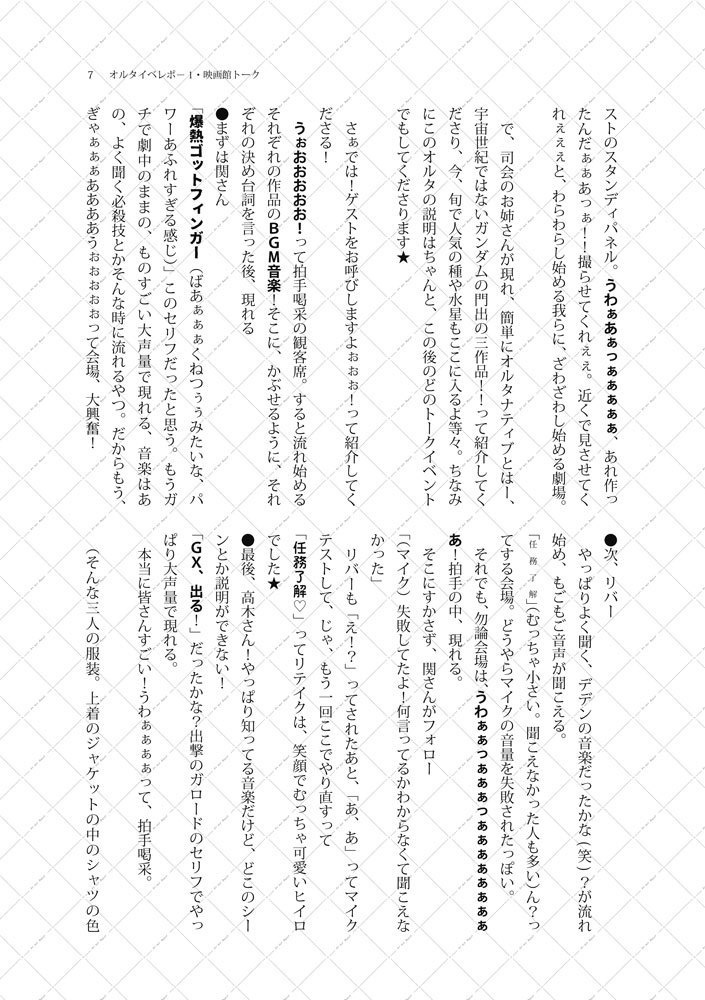 7 オルタイベレポー1・映画館トーク
ストのスタンディパネル。うわぁあぁっぁぁぁぁぁ、あれ作っ
たんだぁぁあっぁ！！撮らせてくれぇぇ。近くで見させてく
れぇぇぇと、わらわらし始める我らに、ざわざわし始める劇場。
で、司会のお姉さんが現れ、簡単にオルタナティブとはー、
宇宙世紀ではないガンダムの門出の三作品！！って紹介してく
ださり、今、旬で人気の種や水星もここに入るよ等々。ちなみ
にこのオルタの説明はちゃんと、この後のどのトークイベント
でもしてくださります★
さぁでは！ゲストをお呼びしますよぉぉぉ！って紹介してく
ださる！
うぉおおおおお！って拍手喝采の観客席。すると流れ始める
それぞれの作品のＢＧＭ音楽！そこに、かぶせるように、それ
ぞれの決め台詞を言った後、現れる
●まずは関さん
「爆熱ゴットフィンガー（ばあぁぁぁくねつぅぅみたいな、パ
ワーあふれすぎる感じ）」このセリフだったと思う。もうガ
チで劇中のままの、ものすごい大声量で現れる、音楽はあ
の、よく聞く必殺技とかそんな時に流れるやつ。だからもう、
ぎゃぁぁぁああああうぉぉぉぉぉって会場、大興奮！
●次、リバー
やっぱりよく聞く、デデンの音楽だったかな（笑）？が流れ
始め、もごもご音声が聞こえる。
「任務了解」（むっちゃ小さい。聞こえなかった人も多い）ん？っ
てする会場。どうやらマイクの音量を失敗されたっぽい。
それでも、勿論会場は、うわぁぁっぁぁぁっぁぁぁぁぁぁぁぁ
あ！拍手の中、現れる。
そこにすかさず、関さんがフォロー
「（マイク）失敗してたよ！何言ってるかわからなくて聞こえな
かった」
リバーも「え！？」ってされたあと、「あ、あ」ってマイク
テストして、じゃ、もう一回ここでやり直すって
「任務了解♡」ってリテイクは、笑顔でむっちゃ可愛いヒイロ
でした★
●最後、高木さん！やっぱり知ってる音楽だけど、どこのシー
ンとか説明ができない！
「ＧＸ、出る！」だったかな？出撃のガロードのセリフでやっ
ぱり大声量で現れる。
本当に皆さんすごい！うわぁぁぁぁって、拍手喝采。
（そんな三人の服装。上着のジャケットの中のシャツの色